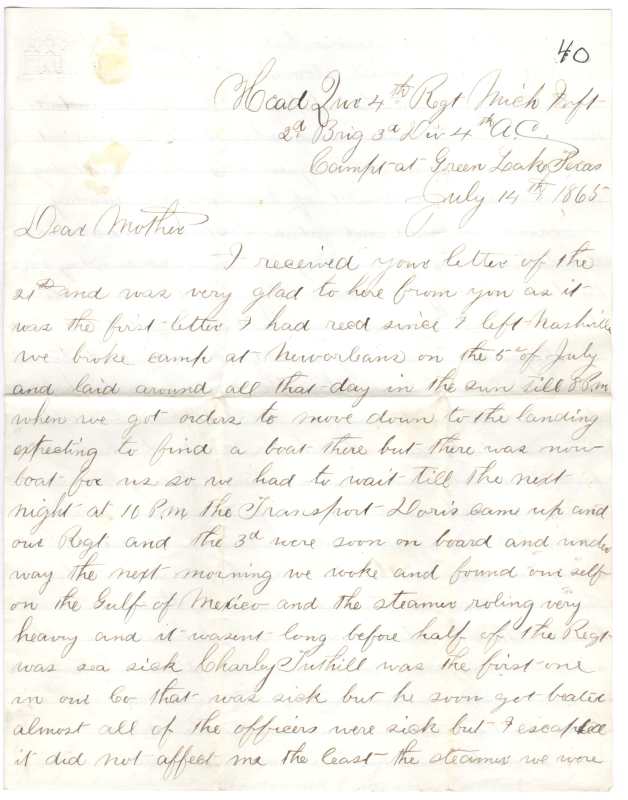 40
Head Qur 4th Regt Mich Inft
2d Brig 3d Div 4th A.C.
Campt at Green Lake Texas
July 14th 1865
Dear Mother
I received your letter of the
21st and was very glad to here from you as it
was the first letter I had recd since I left Nashville
we broke camp at Neworleans on the 5th of July
and laid around all that day in the sun till 8 P.m
when we got orders to move down to the landing
expecting to find a boat there but there was now
boat for us so we had to wait till the next
night at 10 P.m the Transport Doris cam up and
our Regt and the 3d were soon on board and under
way the next morning we woke and found our self
on the Gulf of Mexico and the steamer roling very
heavy and it wasent long before half of the Regt
was sea sick Charley Tuthill was the first one
in our Co that was sick but he soon got beater
almost all of the officers were sick but I escaped
it did not affect me the least the steamer we were